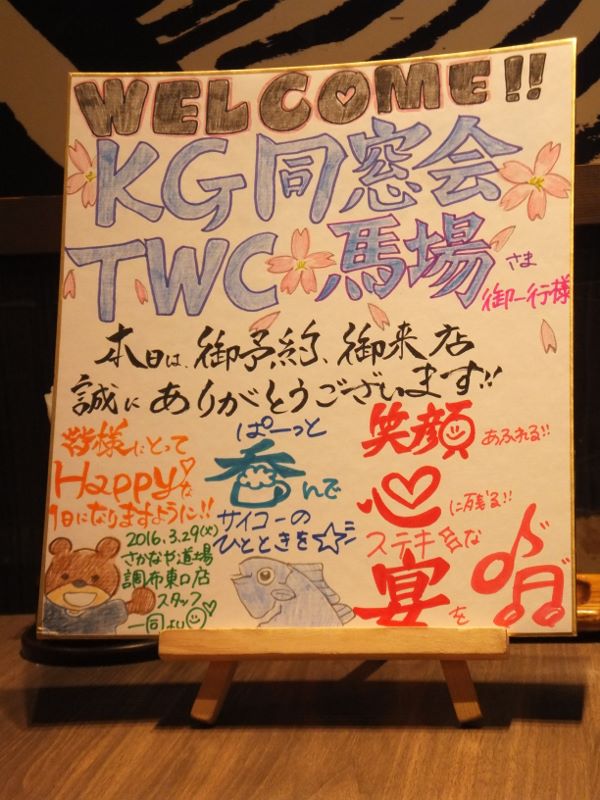 WELCOME!!
KG同窓会
TWC 馬場さま
御一行様
本日は、御予約、御来店
誠にありがとうございます!!
皆様にとって
Happyな
1日になりますように!!
2016.3.29(火)
さかなや道場
調布東口店
スタッフ
一同より
ぱーっと
呑んで
サイコーの
ひとときを
笑顔あふれる!!
心に残る!!
ステキな
宴を